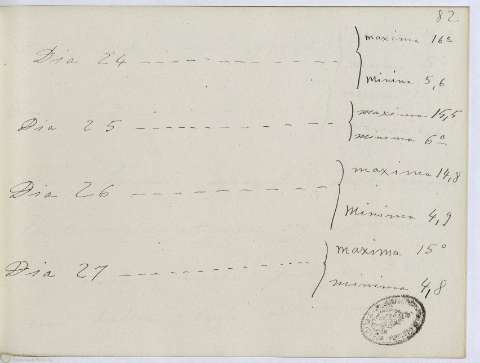 82.
maxima 16º
Dia 24 — — — — — — — —
minima 5,6
maxima 15,5
Dia 25 — — — — — — — —
minima 6º
maxima 14,8
Dia 26 — — — — — — — —
minima 4,9
maxima 15º
Dia 27 — — — — — — — —
minima 4,8